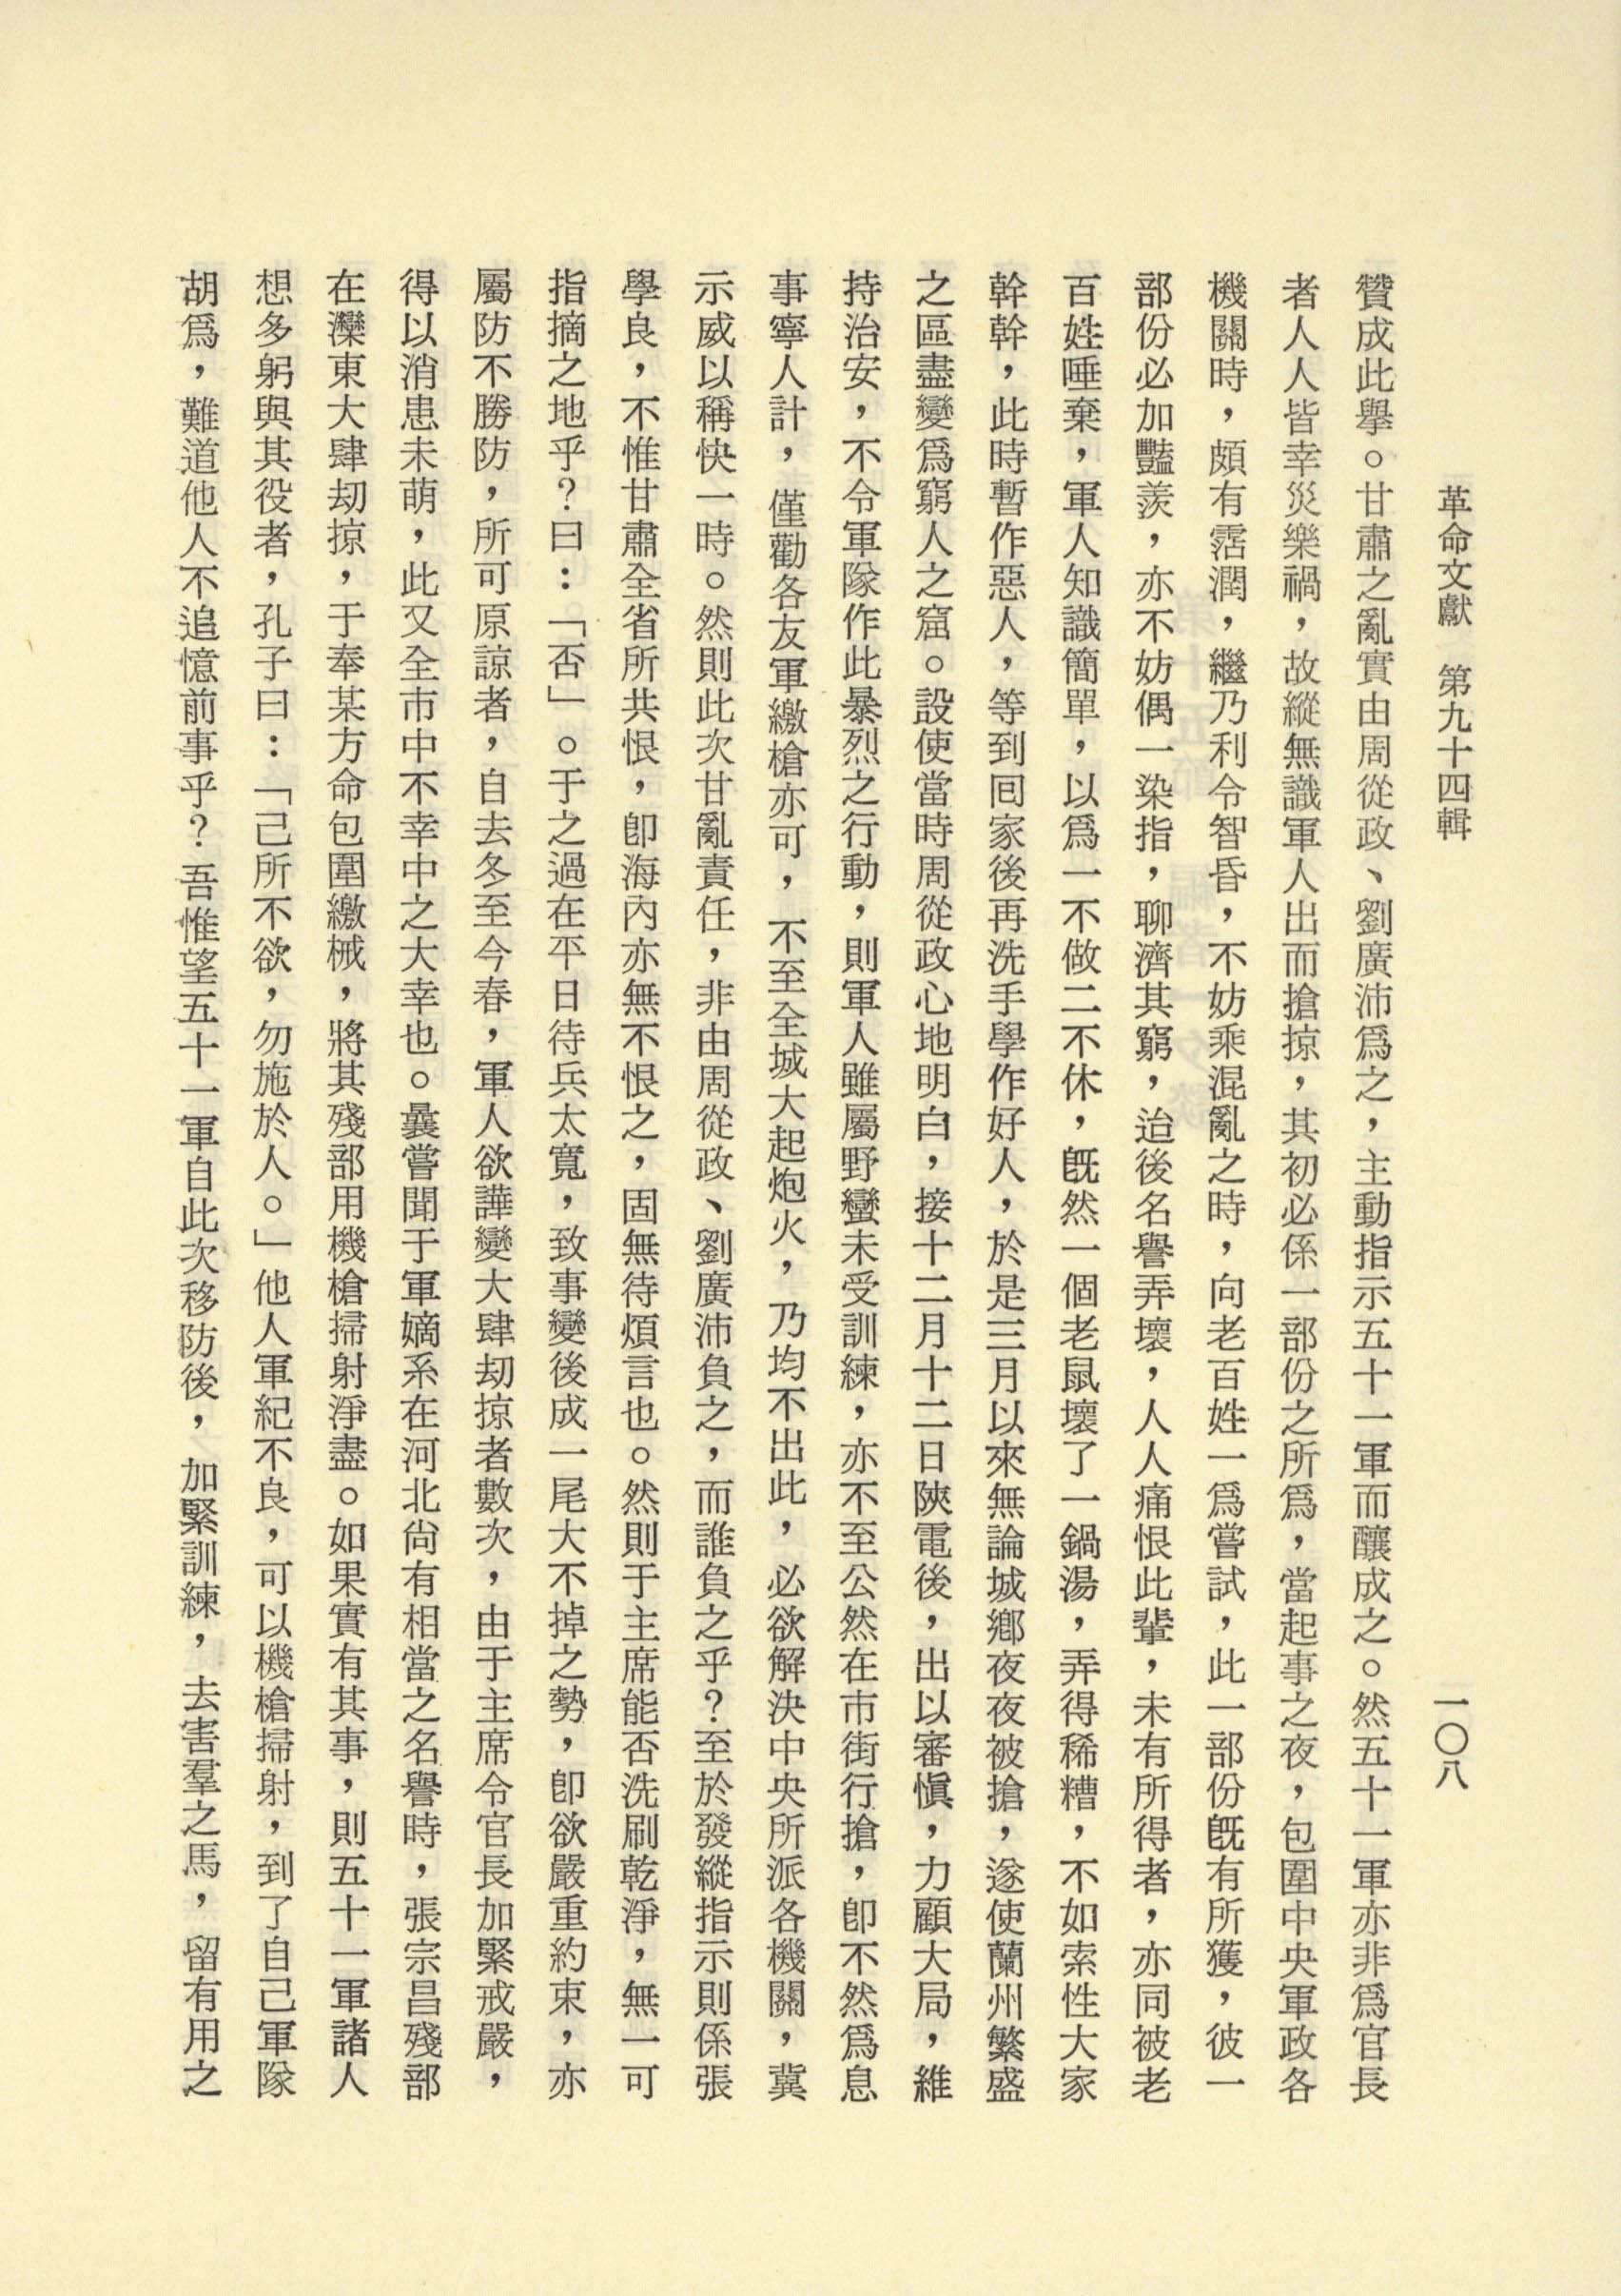 革命文獻　第九十四輯　一〇八
贊成此舉。甘肅之亂實由周從政、劉廣沛爲之，主動指示五十一軍而釀成之。然五十一軍亦非爲官長
者人人皆幸災樂禍，故縱無識軍人出而搶掠，其初必係一部份之所爲，當起事之夜，包圍中央軍政各
機關時，頗有霑潤，繼乃利令智昏，不妨乘混亂之時，向老百姓一爲嘗試，此一部份旣有所獲，彼一
部份必加豔羨，亦不妨偶一染指，聊濟其窮，迨後名譽弄壞，人人痛恨此輩，未有所得者，亦同被老
百姓唾棄，軍人知識簡單，以爲一不做二不休，旣然一個老鼠壞了一鍋湯，弄得稀糟，不如索性大家
幹幹，此時暫作惡人，等到囘家後再洗手學作好人，於是三月以來無論城鄉夜夜被搶，遂使蘭州繁盛
之區盡變爲窮人之窟。設使當時周從政心地明白，接十二月十二日陝電後，出以審愼，力顧大局，維
持治安，不令軍隊作此暴烈之行動，則軍人雖屬野蠻未受訓練，亦不至公然在市街行搶，卽不然爲息
事寧人計，僅勸各友軍繳槍亦可，不至全城大起炮火，乃均不出此，必欲解決中央所派各機關，冀
示威以稱快一時。然則此次甘亂責任，非由周從政、劉廣沛負之，而誰負之乎？至於發縱指示則係張
學良，不惟甘肅全省所共恨，卽海內亦無不恨之，固無待煩言也。然則于主席能否洗刷乾淨，無一可
指摘之地乎？曰：「否」。于之過在平日待兵太寬，致事變後成一尾大不掉之勢，卽欲嚴重約束，亦
屬防不勝防，所可原諒者，自去冬至今春，軍人欲譁變大肆劫掠者數次，由于主席令官長加緊戒嚴，
得以消患未萌，此又全市中不幸中之大幸也。曩嘗聞于軍嫡系在河北尙有相當之名譽時，張宗昌殘部
在灤東大肆劫掠，于奉某方命包圍繳械，將其殘部用機槍掃射淨盡。如果實有其事，則五十一軍諸人
想多躬與其役者，孔子曰：「己所不欲，勿施於人。」他人軍紀不良，可以機槍掃射，到了自己軍隊
胡爲，難道他人不追憶前事乎？吾惟望五十一軍自此次移防後，加緊訓練，去害羣之馬，留有用之